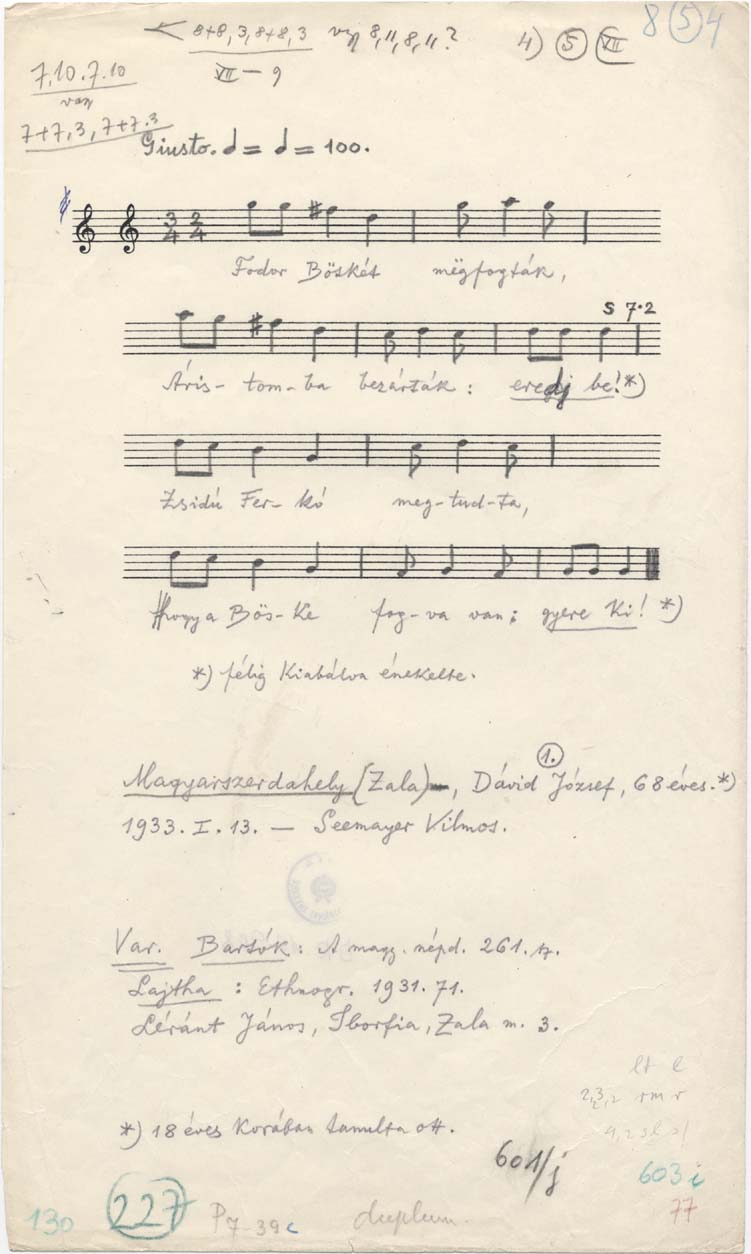 8+8, 3, 8+8, 3 vagy 8, 11, 8, 11?
VII – 9
4) 5 VII
8 5 4
7.10.7.10
vagy
7+7, 3, 7+7.3
Giusto. = = 100.
3 2
4 4
Fodor Böskét mëgfogták,
S 7·2
Áris- tom- ba bezárták: eredj be! *)
Zsidú Fer- kó meg-tud-ta,
Hogy a Bös- ke fog-va van; gyere ki! *)
*) félig kiabálva énekelte.
1.
Magyarszerdahely (Zala), Dávid József, 68 éves. *)
1933. I. 13. — Seemayer Vilmos.
Var. Bartók: A magy. népd. 261. sz.
Lajtha : Ethnogr. 1931. 71.
Léránt János, Iborfia, Zala m. 3.
lt l
2,3,2 rm r
*) 18 éves korában tanulta ott.
601/j
603 i
77
130 227 P7-39c duplum.